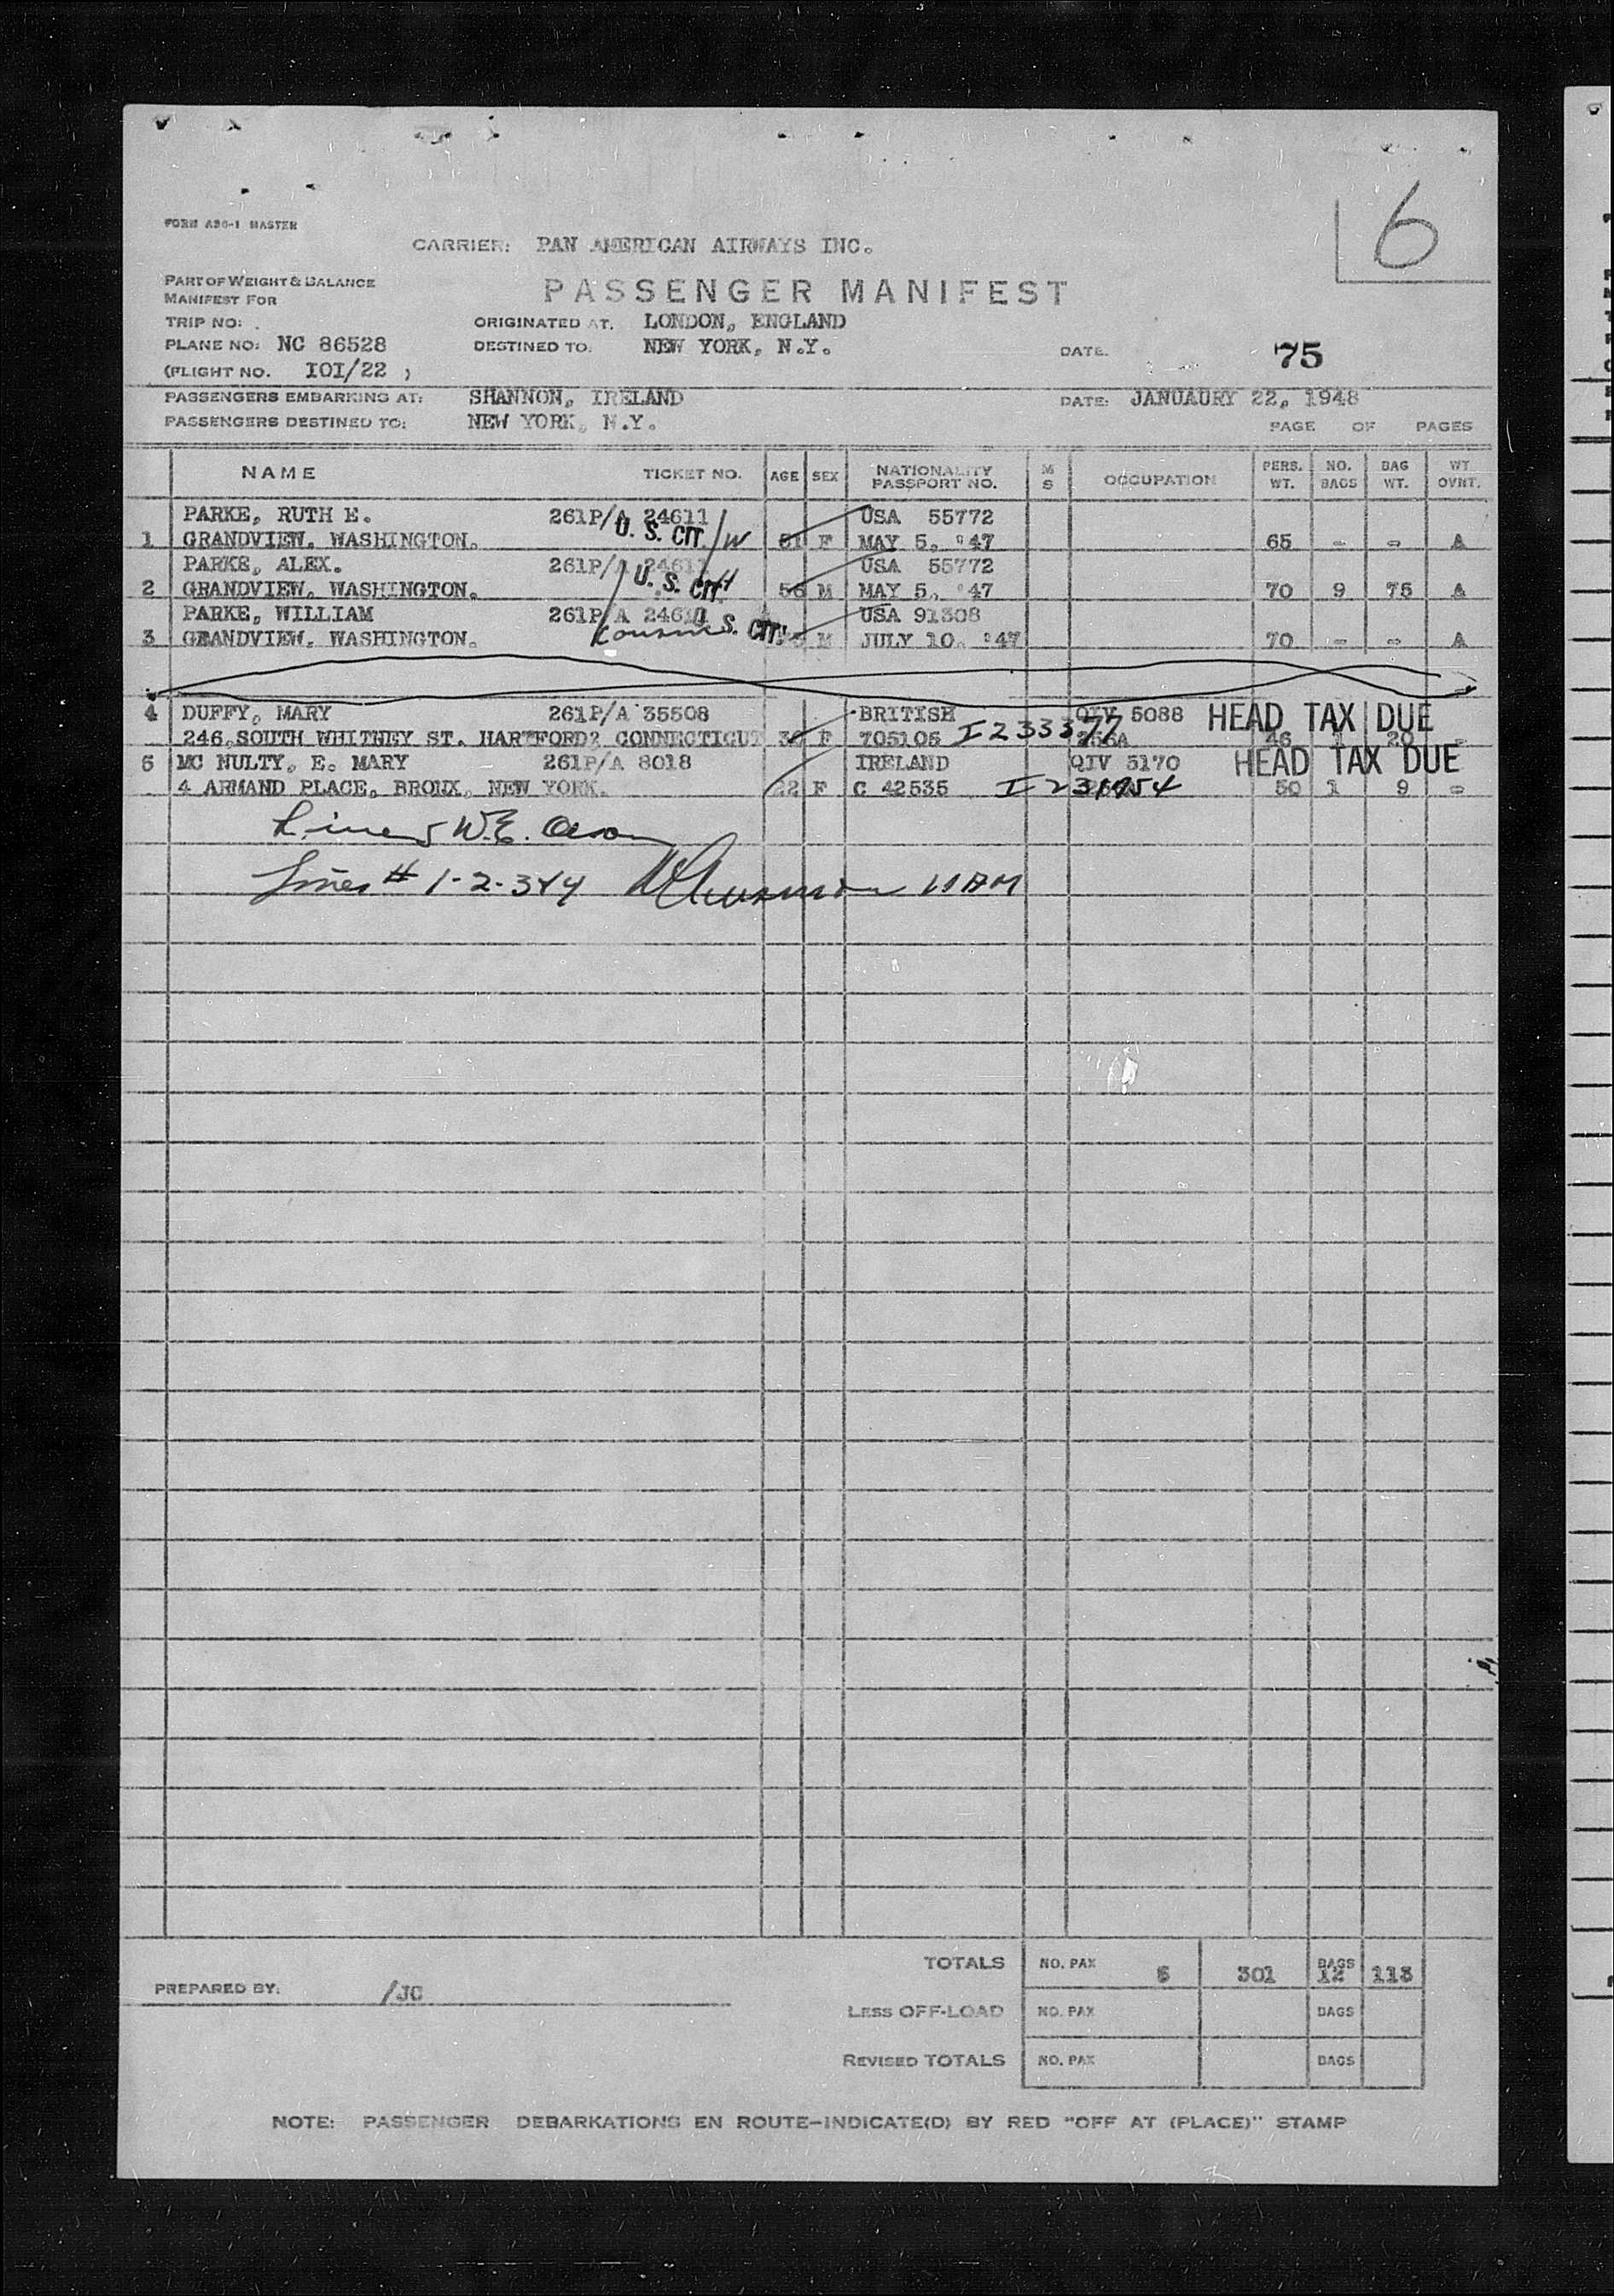 6
FORM A30-1 MASTER
CARRIER: PAN AMERICAN AIRWAYS INC.
PART OF WEIGHT & BALANCE
MANIFEST FOR
PASSENGER MANIFEST
TRIP NO:
ORIGINATED AT. LONDON, ENGLAND
PLANE NO: NC 86528
DESTINED TO. NEW YORK, N.Y.
DATE. 75
(FLIGHT NO. IOI/22 )
PASSENGERS EMBARKING AT: SHANNON, IRELAND
DATE: JANUAURY 22, 1948
PASSENGERS DESTINED TO: NEW YORK, N.Y.
PAGE OF PAGES
NAME TICKET NO. AGE SEX NATIONALITY PASSPORT NO. M S OCCUPATION PERS. WT. NO. BAGS BAG WT. WT OVNT.
PARKE, RUTH E. 261P/A 24611 USA 55772
1 GRANDVIEW. WASHINGTON. U. S. CIT. W 51 F MAY 5. '47 65 - - A
PARKE, ALEX. 261P/A USA 55772
2 GRANDVIEW. WASHINGTON. U. S. CIT. 56 M MAY 5. '47 70 9 75 A
PARKE, WILLIAM 261P/A USA 91308
3 GRANDVIEW. WASHINGTON. S. CIT. M JULY 10. '47 70 - - A
4 DUFFY, MARY 261P/A 35508 BRITISH QIV 5088 HEAD TAX DUE
246 SOUTH WHITNEY ST. HARTFORD? CONNECTICUT F 705105 I 233377 46 1 20 -
5 MC NULTY, E. MARY 261P/A 8018 IRELAND QIV 5170 HEAD TAX DUE
4 ARMAND PLACE, BRONX, NEW YORK. 22 F C 42535 50 1 9 -
W.E.
Lines # 1-2-3&4
TOTALS NO. PAX 5 301 BAGS 12 113
PREPARED BY: /JC
LESS OFF-LOAD NO. PAX BAGS
REVISED TOTALS NO. PAX BAGS
NOTE: PASSENGER DEBARKATIONS EN ROUTE-INDICATE(D) BY RED "OFF AT (PLACE)" STAMP